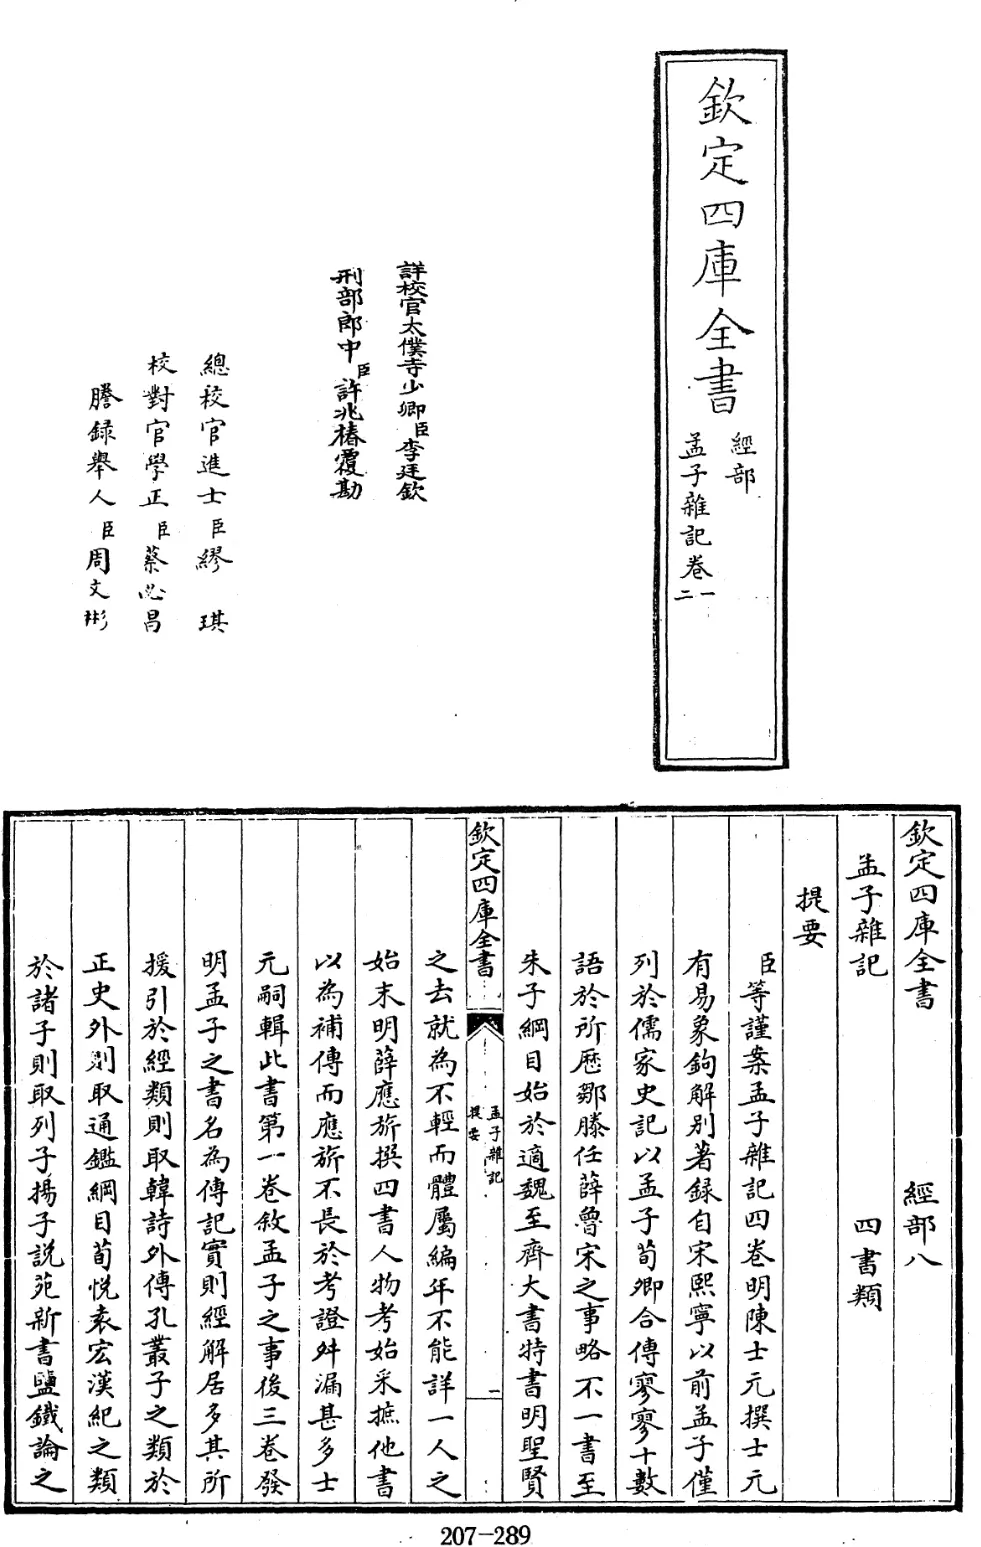 欽定四庫全書
經部
孟子雜記卷一
二
詳校官太僕寺少卿臣李廷欽
刑部郎中臣許兆椿覆勘
總校官進士臣繆琪
校對官學正臣蔡必昌
謄錄舉人臣周文彬
欽定四庫全書 經部八
孟子雜記 四書類
提要
臣等謹案孟子雜記四卷明陳士元撰士元
有易象鉤解別著錄自宋熙寧以前孟子僅
列於儒家史記以孟子荀卿合傳寥寥十數
語於所歷鄒滕任薛魯宋之事略不一書至
朱子綱目始於適魏至齊大書特書明聖賢
欽定四庫全書
孟子雜記
提要
一
之去就為不輕而體屬編年不能詳一人之
始末明薛應旂撰四書人物考始采摭他書
以為補傳而應旂不長於考證舛漏甚多士
元嗣輯此書第一卷敘孟子之事後三卷發
明孟子之書名為傳記實則經解居多其所
援引於經類則取韓詩外傳孔叢子之類於
正史外則取通鑑綱目荀悅袁宏漢紀之類
於諸子則取列子揚子說苑新書鹽鐵論之
207-289